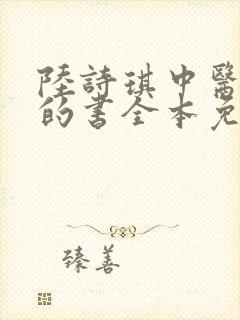 陸詩琪中醫
的書全本免
臻善